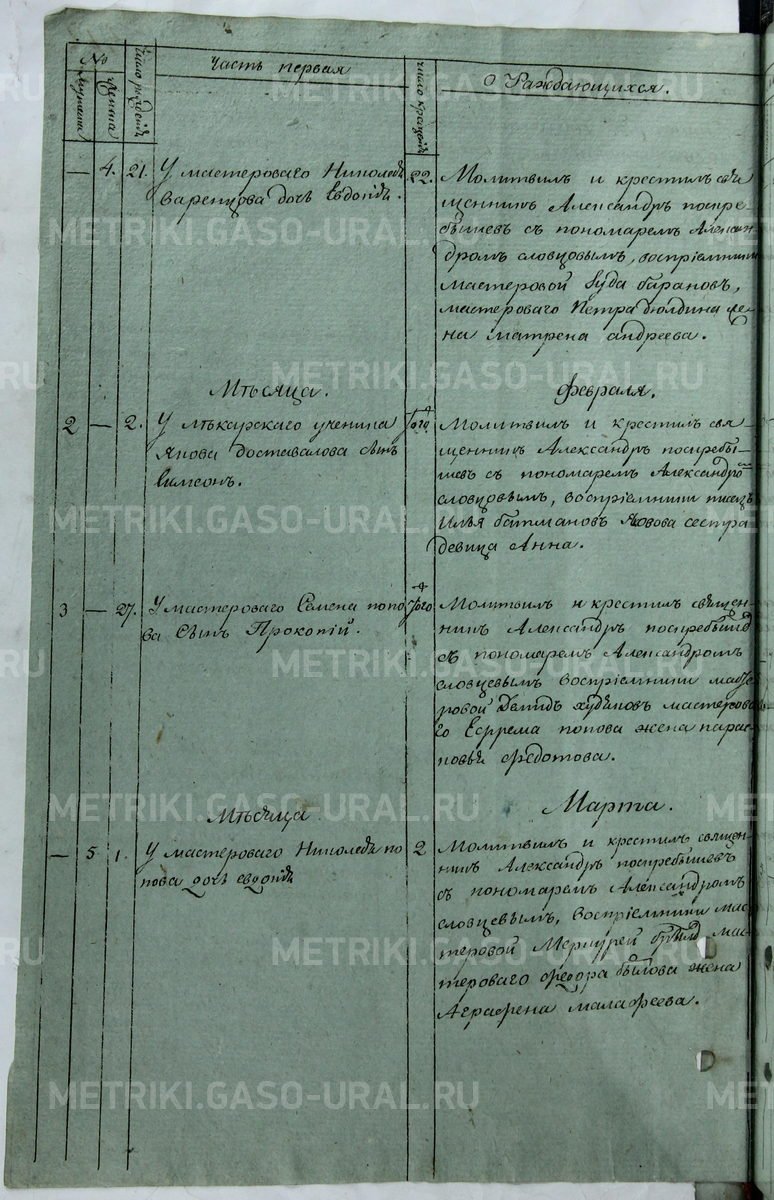 №
Мужеска
Женска
Число рожденія
Часть первая
Число крещенія
О Раждающихся.
— 4. 21. У мастероваго Николая
Варенцова дочь Евдокія.
22. Молитвилъ и крестилъ свя
щенникъ Александръ поскре
бышевъ съ пономаремъ Алексан
дромъ словцовымъ, воспріемники
мастеровой Іуда барановъ,
мастероваго Петра бюлдина же
на матрена андреева.
Мѣсяца. Февраля.
2 — 2. У лѣкарскаго ученика
Якова доставалова сынъ
Симеонъ.
Того Молитвилъ и крестилъ свя
щенникъ Александръ поскребы
шевъ съ пономаремъ Александро
словцовымъ, воспріемники писецъ
Илья батмановъ Якова сестра
девица Анна.
3 — 27. У мастероваго Семена попо
ва Сынъ Прокопій.
Того Молитвилъ и крестилъ священ
никъ Александръ поскребышевъ
съ пономаремъ Александромъ
словцевымъ воспріемники масте
ровой Давидъ мастерова
го Ефрема попова жена парас
ковья федотова.
Мѣсяца Марта.
— 5 1. У мастероваго Николая по
пова дочь евдокія
2 Молитвилъ и крестилъ священ
никъ Александръ поскребышевъ
съ пономаремъ Александромъ
словцевымъ, воспріемники мас
теровой Меркурей мас
тероваго федора былова жена
Аграфена малафеева.
METRIKI.GASO-URAL.RU